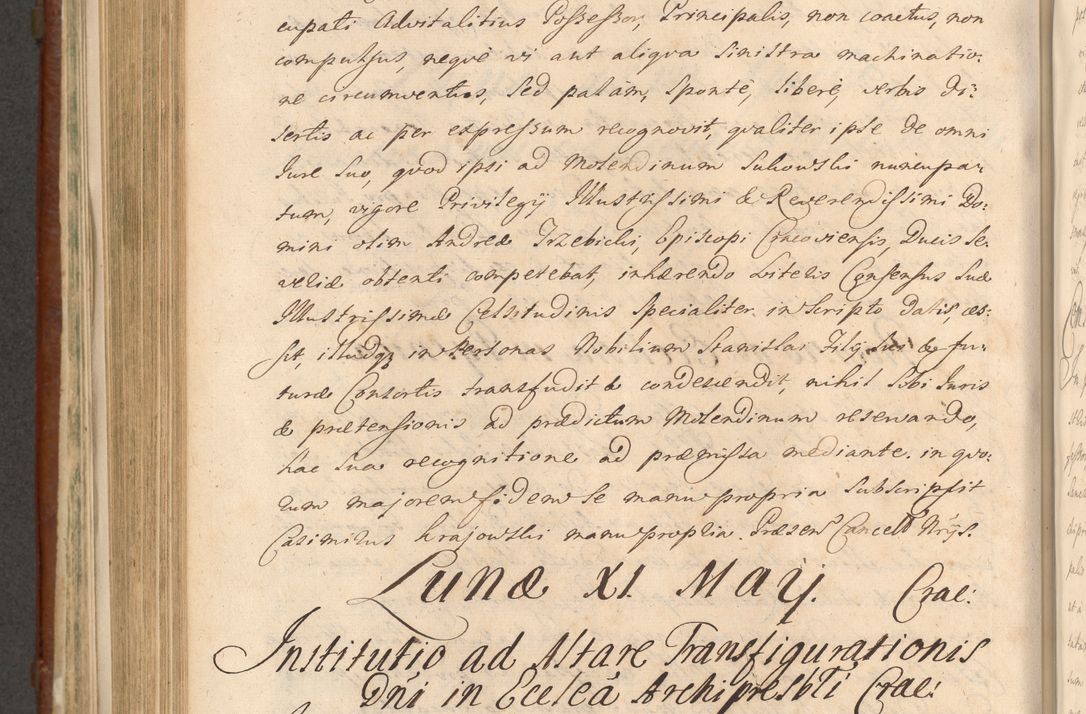 cupati Advitalitius Possessor, Principalis, non coactus, non
compulsus, neqve vi aut aliqva sinistra machinatio:
ne circumventus, sed palàm, spontè, liberè, verbis di:
sertis ac per expressum recognovit, qvaliter ipse de omni
Jure suo, qvod ipsi ad Molendinum Sulowski nuncupa:
tum, vigore Privilegij Illustrissimi & Reverendissimi Do:
mini olim Andreæ Trzebicki, Episcopi Cracoviensis, Ducis Se:
veriæ obtenti competebat, inhærendo Literis Consensus suæ
Illustrissimæ Celsitudinis specialiter in scripto datis, ces:
sit, illudq3 in Personas Nobilium Stanislai Filij sui & fu:
turæ Consortis transfudit & condescendit, nihil sibi Juris
& prætensionis ad prædictum Molendinum reservando,
hac sua recognitione ad præmissa mediante. in qvo:
rum majorem fidem se manu propria subscripsit
Casimirus Krajowski manu propria. Præsen Cancell Nrijs.
Lunæ XI. Maij. Crac:
Institutio ad Altare Transfigurationis
Dńi in Ecclcâ Archipresbti Crac: